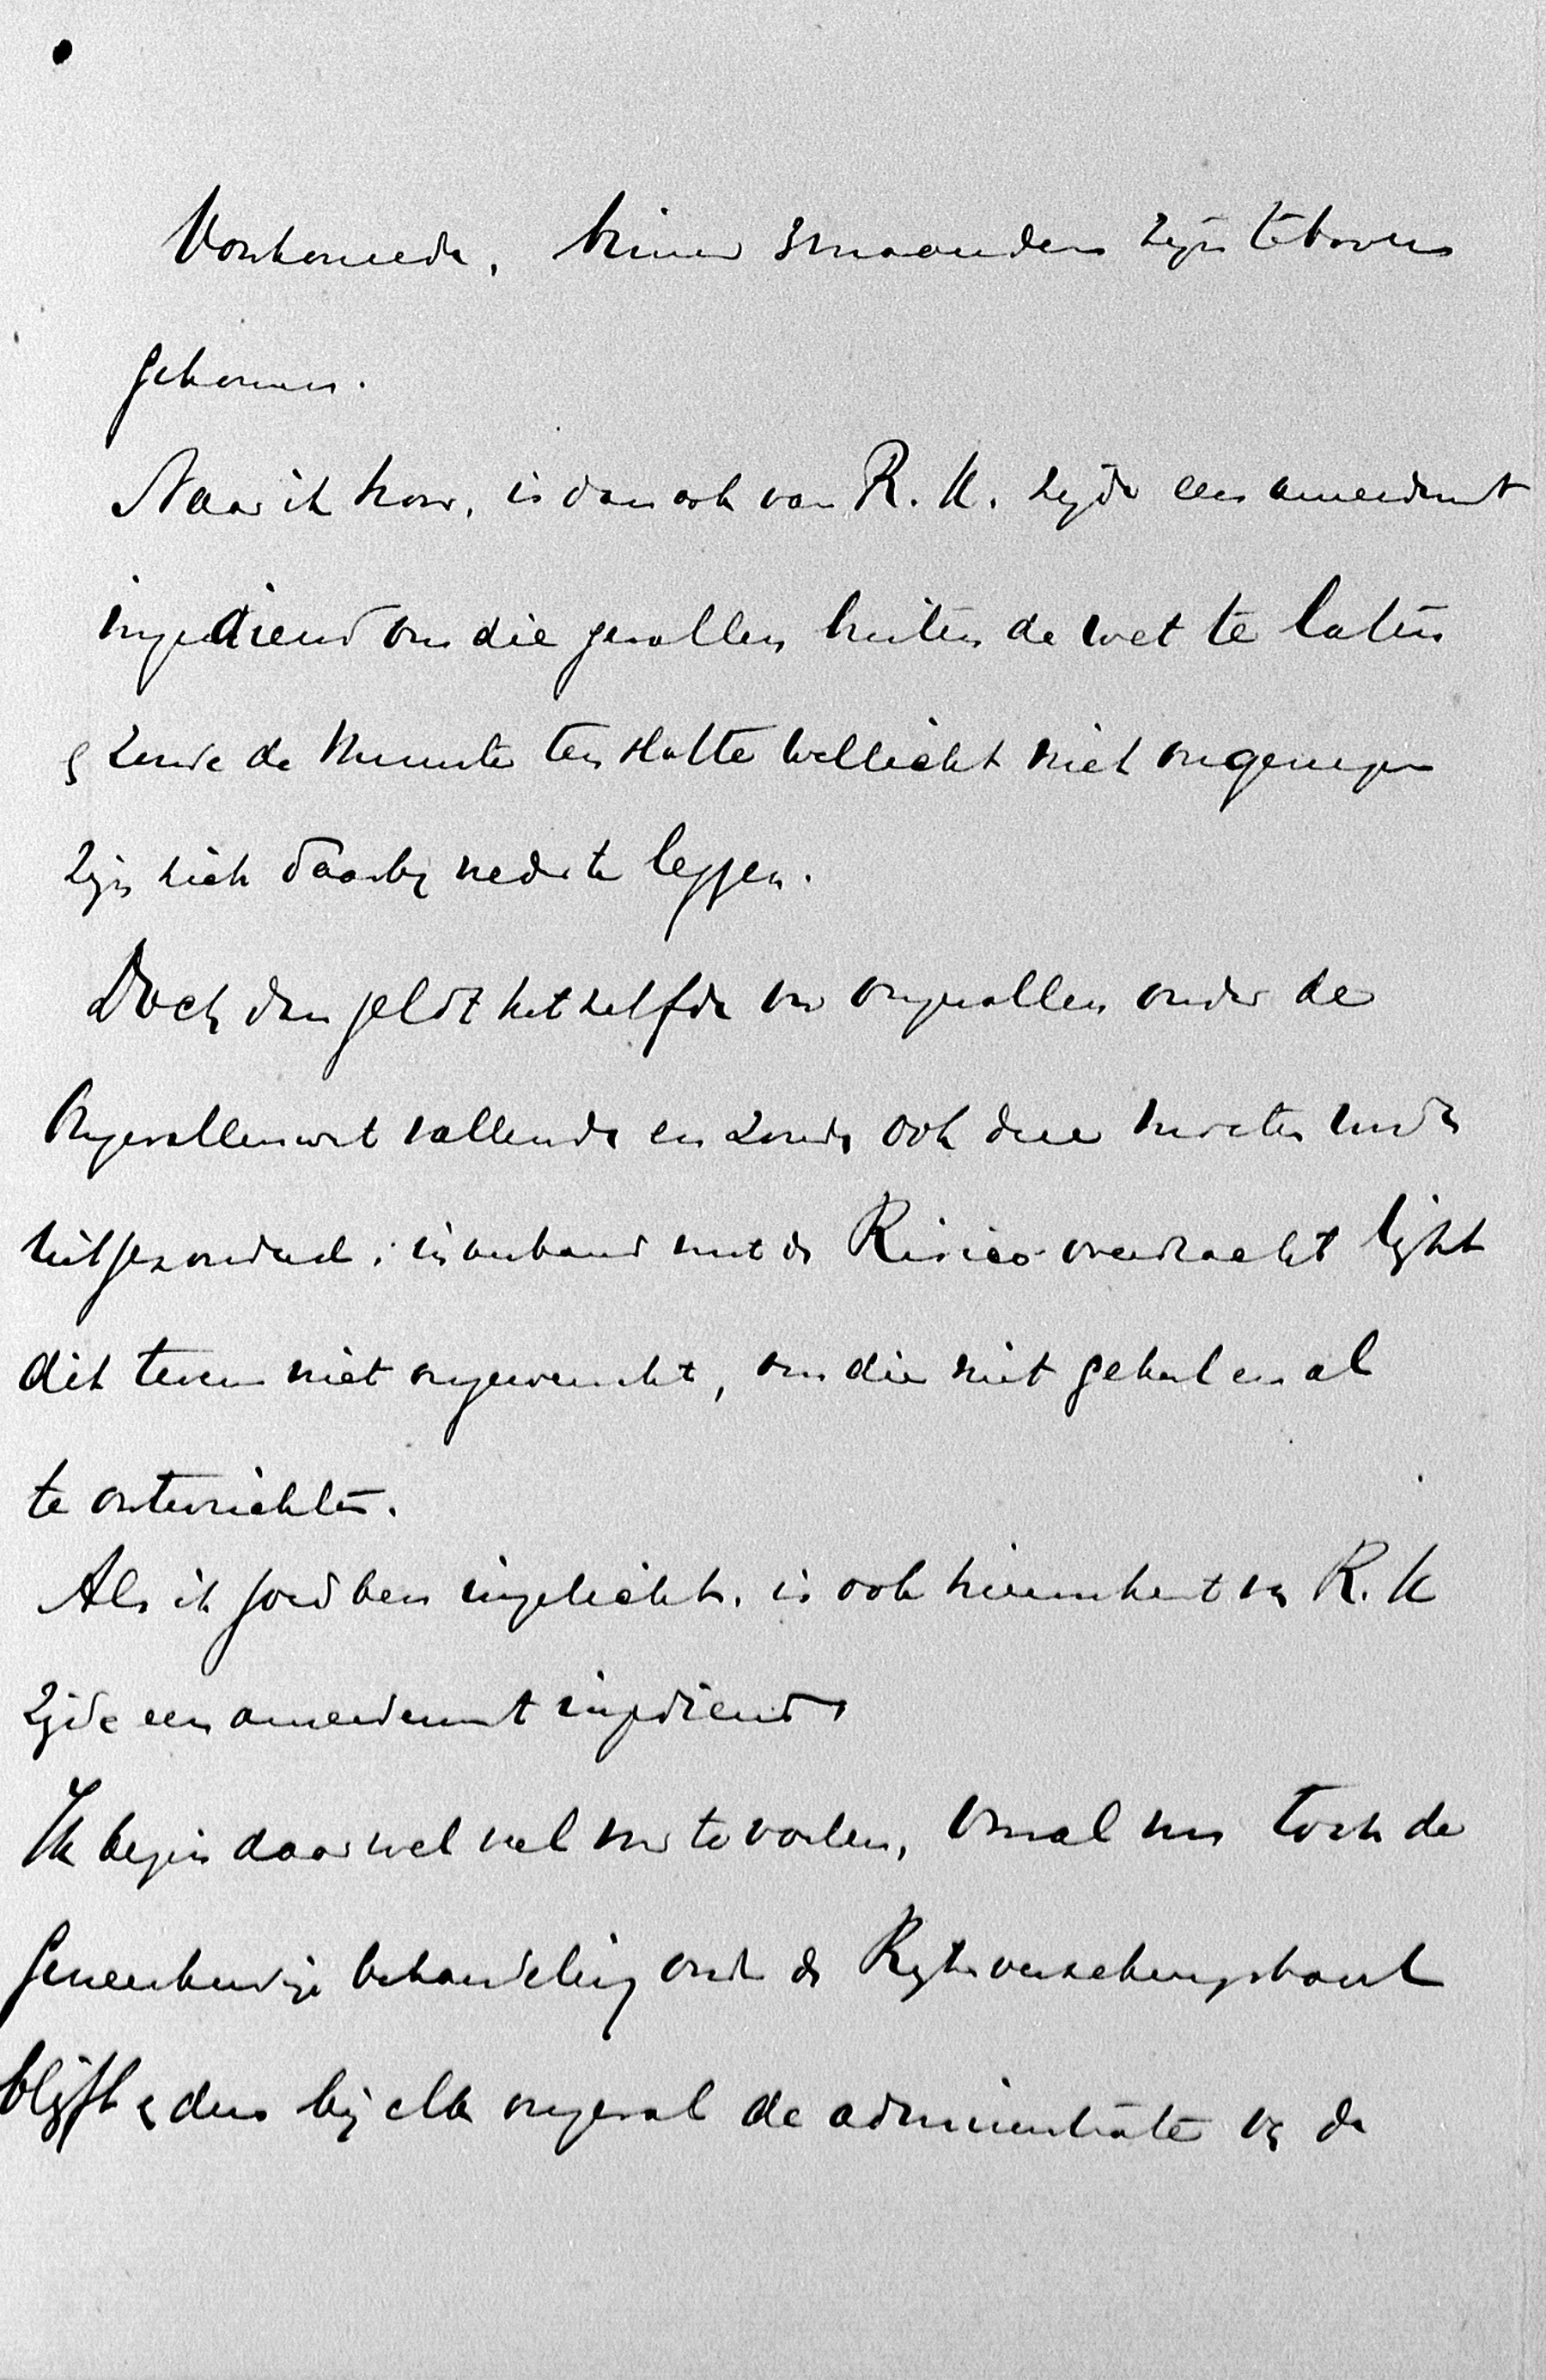 Voorkomende, binnen 3 maanden zijn te boven
gekomen.
Naar ik hoor, is dan ook van R. K. zijde een amendement
ingediend om die gevallen buiten de wet te laten
& zoude de Minister ten slotte wellicht niet ongenegen
zijn zich daarbij neder te leggen.
Doch dan geldt hetzelfde voor ongevallen onder de
Ongevallenwet vallende en zoude ook deze moeten worden
uitgezonderd; in verband met de Risico-overdracht lijkt
dit tevens niet ongewenscht, om die niet geheel en al
te ontwrichten.
Als ik goed ben ingelicht, is ook hieromtrent van R. K
zijde een amendement ingediend
Ik begin daar wel veel voor te voelen, vooral nu toch de
Geneeskundige behandeling onder de Rijksverzekeringsbank
blijft & dus bij elk ongeval de administratie van de